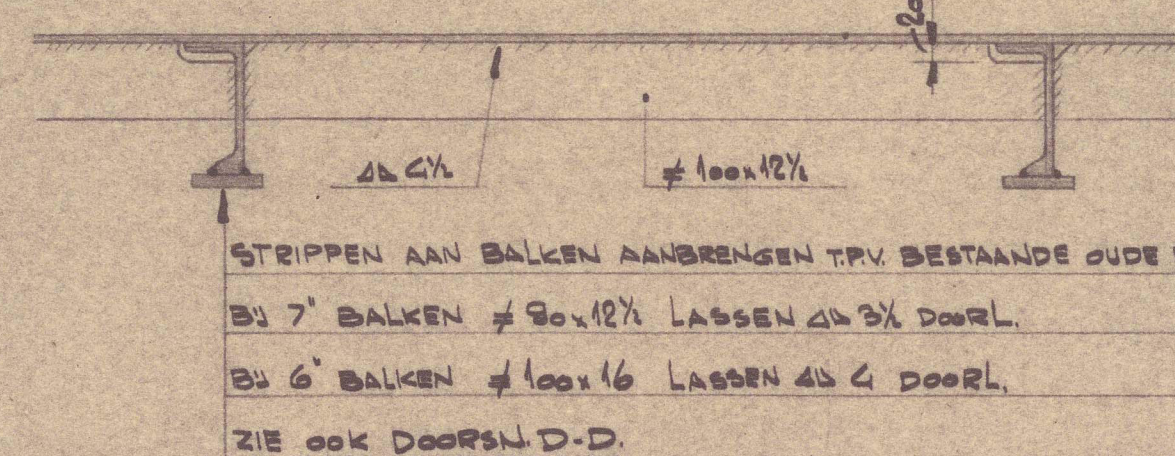 20
⊿⊾ 4½
≠ 100x12½
STRIPPEN AAN BALKEN AANBRENGEN T.P.V. BESTAANDE OUDE
BIJ 7" BALKEN ≠ 80x12½ LASSEN ⊿⊾ 3½ DOORL.
BIJ 6" BALKEN ≠ 100x16 LASSEN ⊿⊾ 4 DOORL.
ZIE OOK DOORSN. D-D.